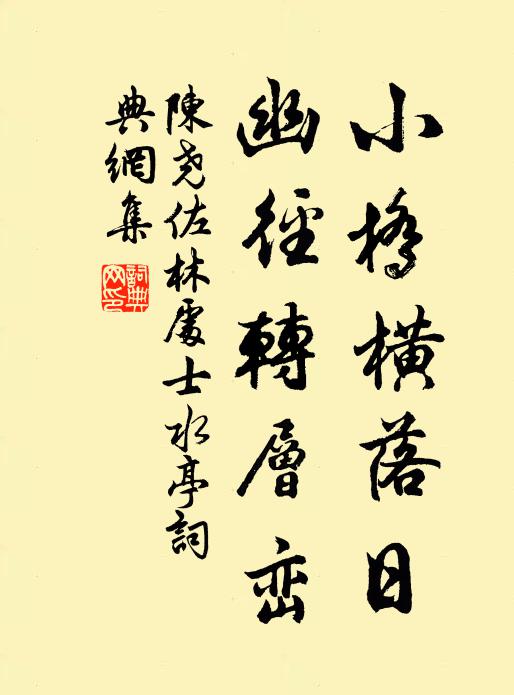 小橋橫落日
幽徑轉層峦
陳尧佐林處士水亭詞
典網集
詞典网印